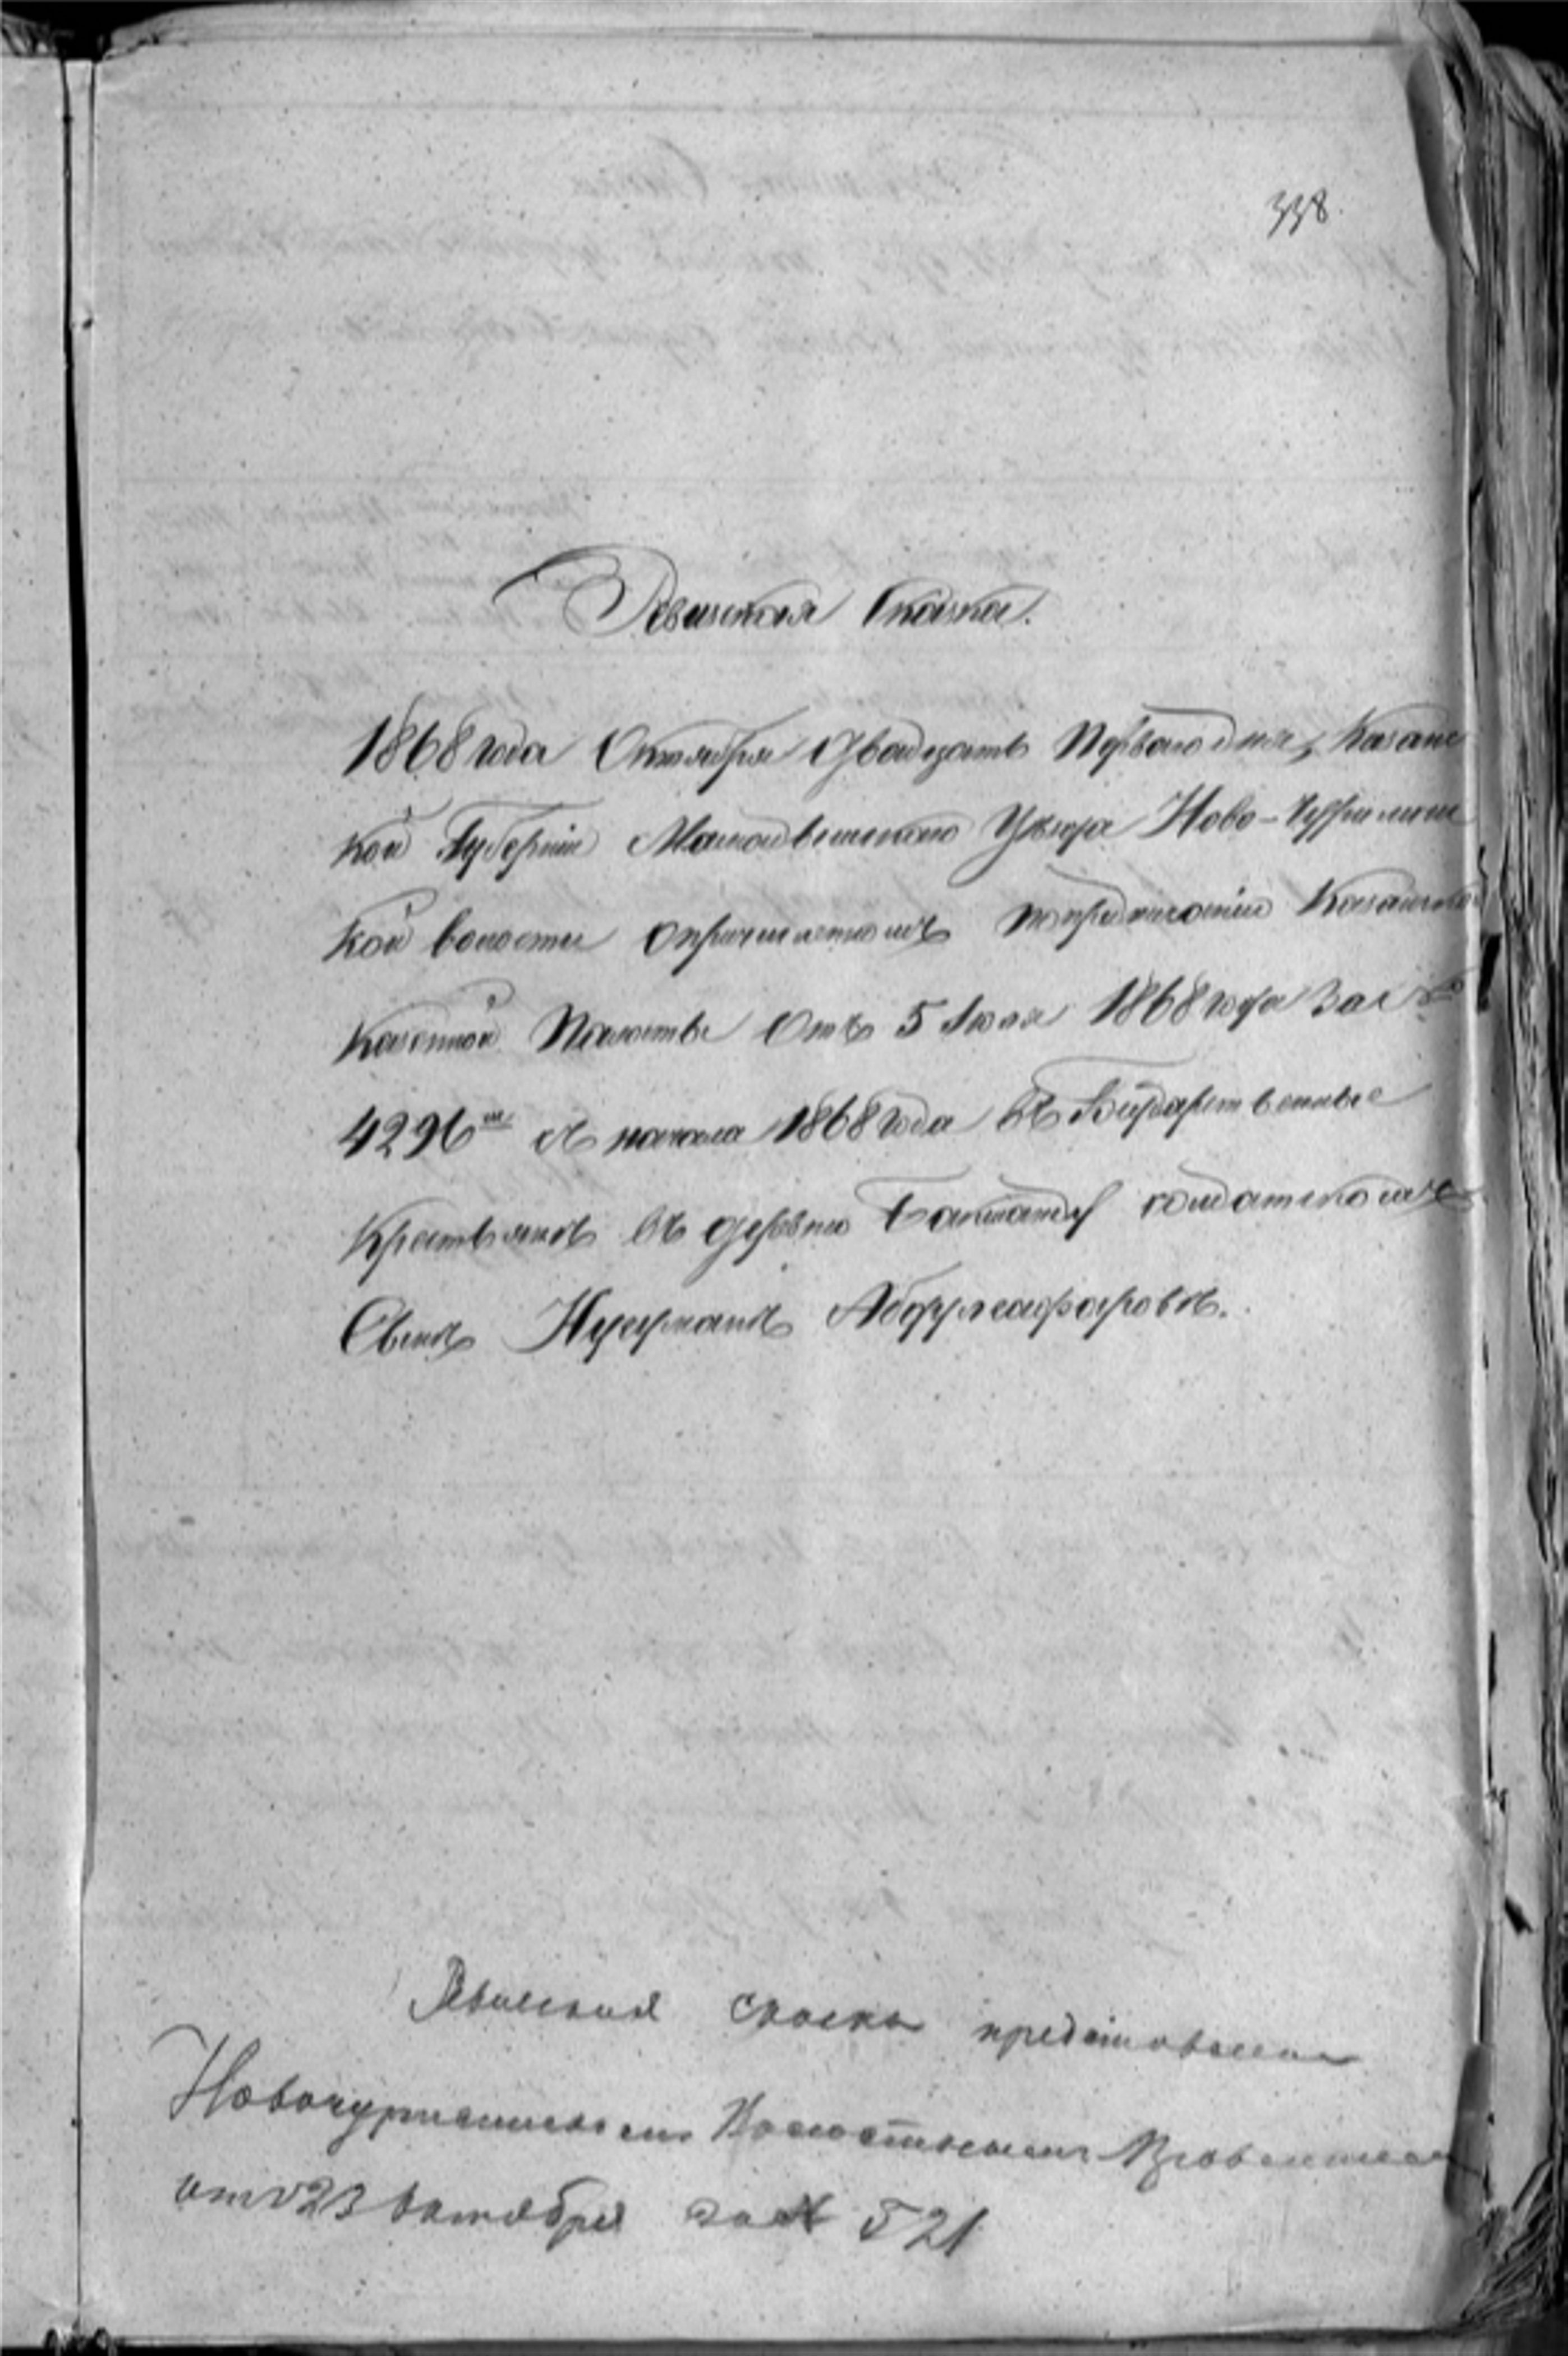 338.
Ревизская Сказка.
1868 года Октября двадцать Перваго дня, Казанс
кой Губерніи Мамадышскаго Уезда Ново-Чурилинс
кой волости о причисленномъ по предписанію Казанской
Казенной Палаты Отъ 5 Іюля 1868 года За №
4296 съ начала 1868 года въ Государственные
Крестьянъ въ деревню солдатскомъ
Сынъ Нугуманъ Абдулгафаровъ.
Ревизская сказка представлена
Новочурилинскимъ Волостнымъ Правленіем
отъ 23 Октября за № 521